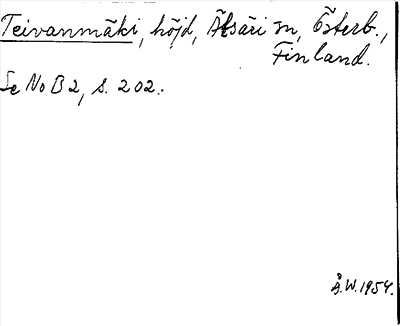 Teivanmäki, höjd, Ätsäri sn, Österb.,
Finland.
Se No B 2, s. 202.
Å.W. 1954.